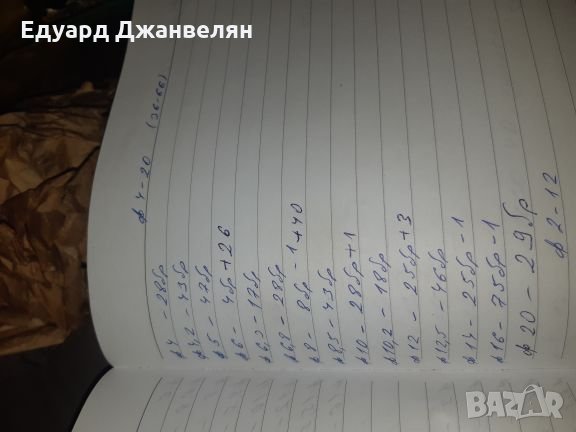 Едуард Джанвелян
ф 4-20 (36-66)
ф4 - 28бр
ф4,2 - 43бр
ф5 - 47бр
ф6 - 4бр+26
ф6,5 - 17бр
ф6,8 - 28бр - 1
ф8 - 8бр +40
ф8,5 - 43бр
ф10 - 28бр+1
ф10,2 - 18бр
ф12 - 25бр+3
ф12,5 - 46бр
ф14 - 25бр-1
ф16 - 75бр-1
ф20 - 29бр
ф 2-12
BAZAR